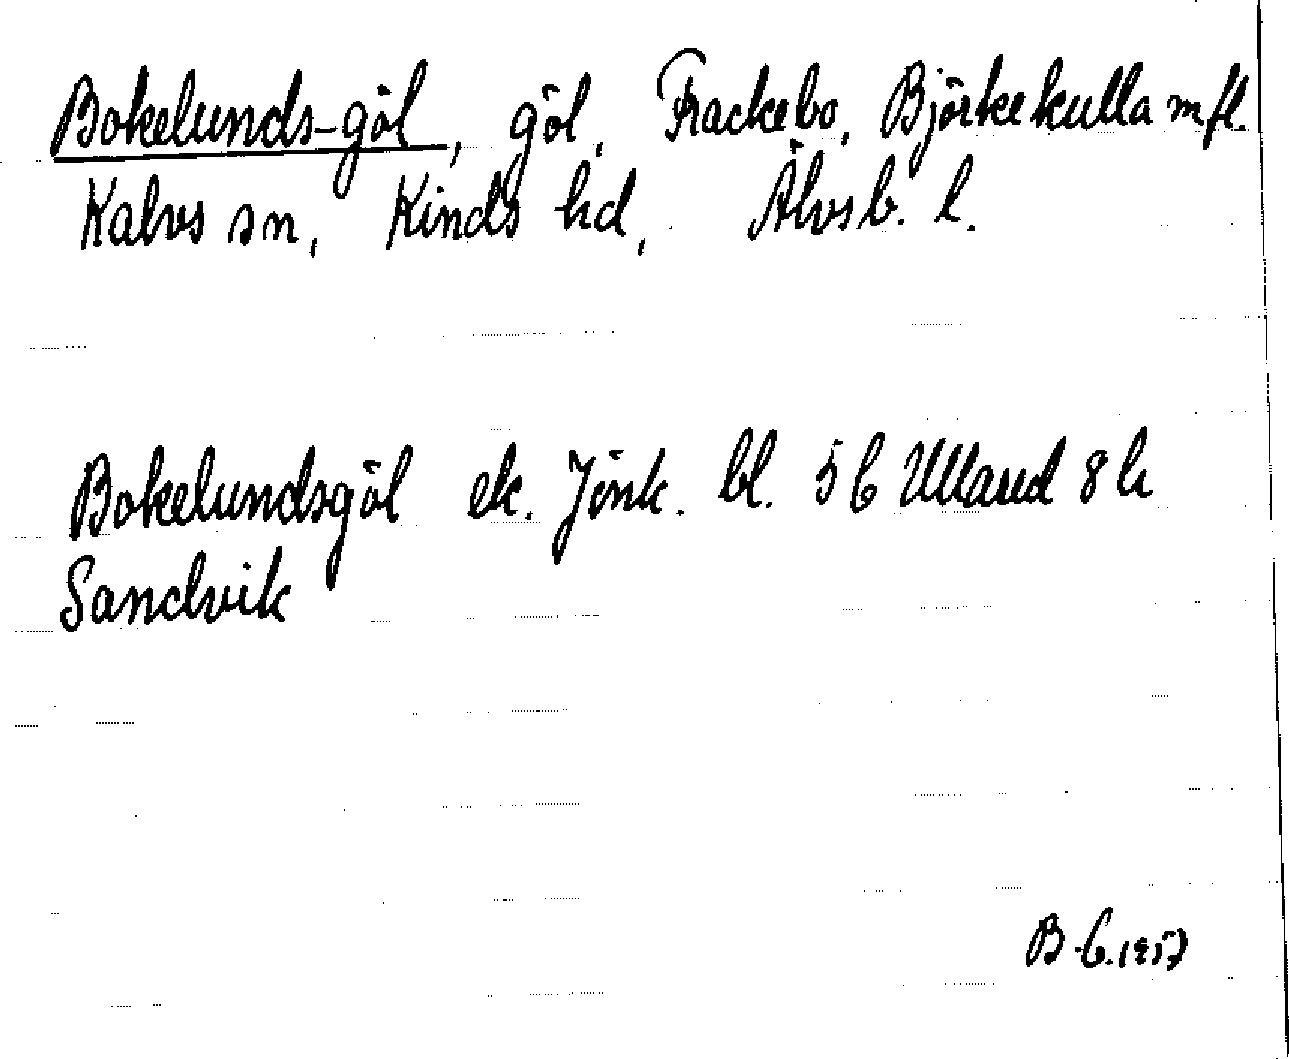 Bokelunds-göl, göl, Frackebo, Björkekulla mfl.
Kalvs sn, Kinds hd, Älvsb. l.
Bokelundsgöl ek. Jönk. bl. 5 b Ullared 8 h
Sandvik
B-b. 1957